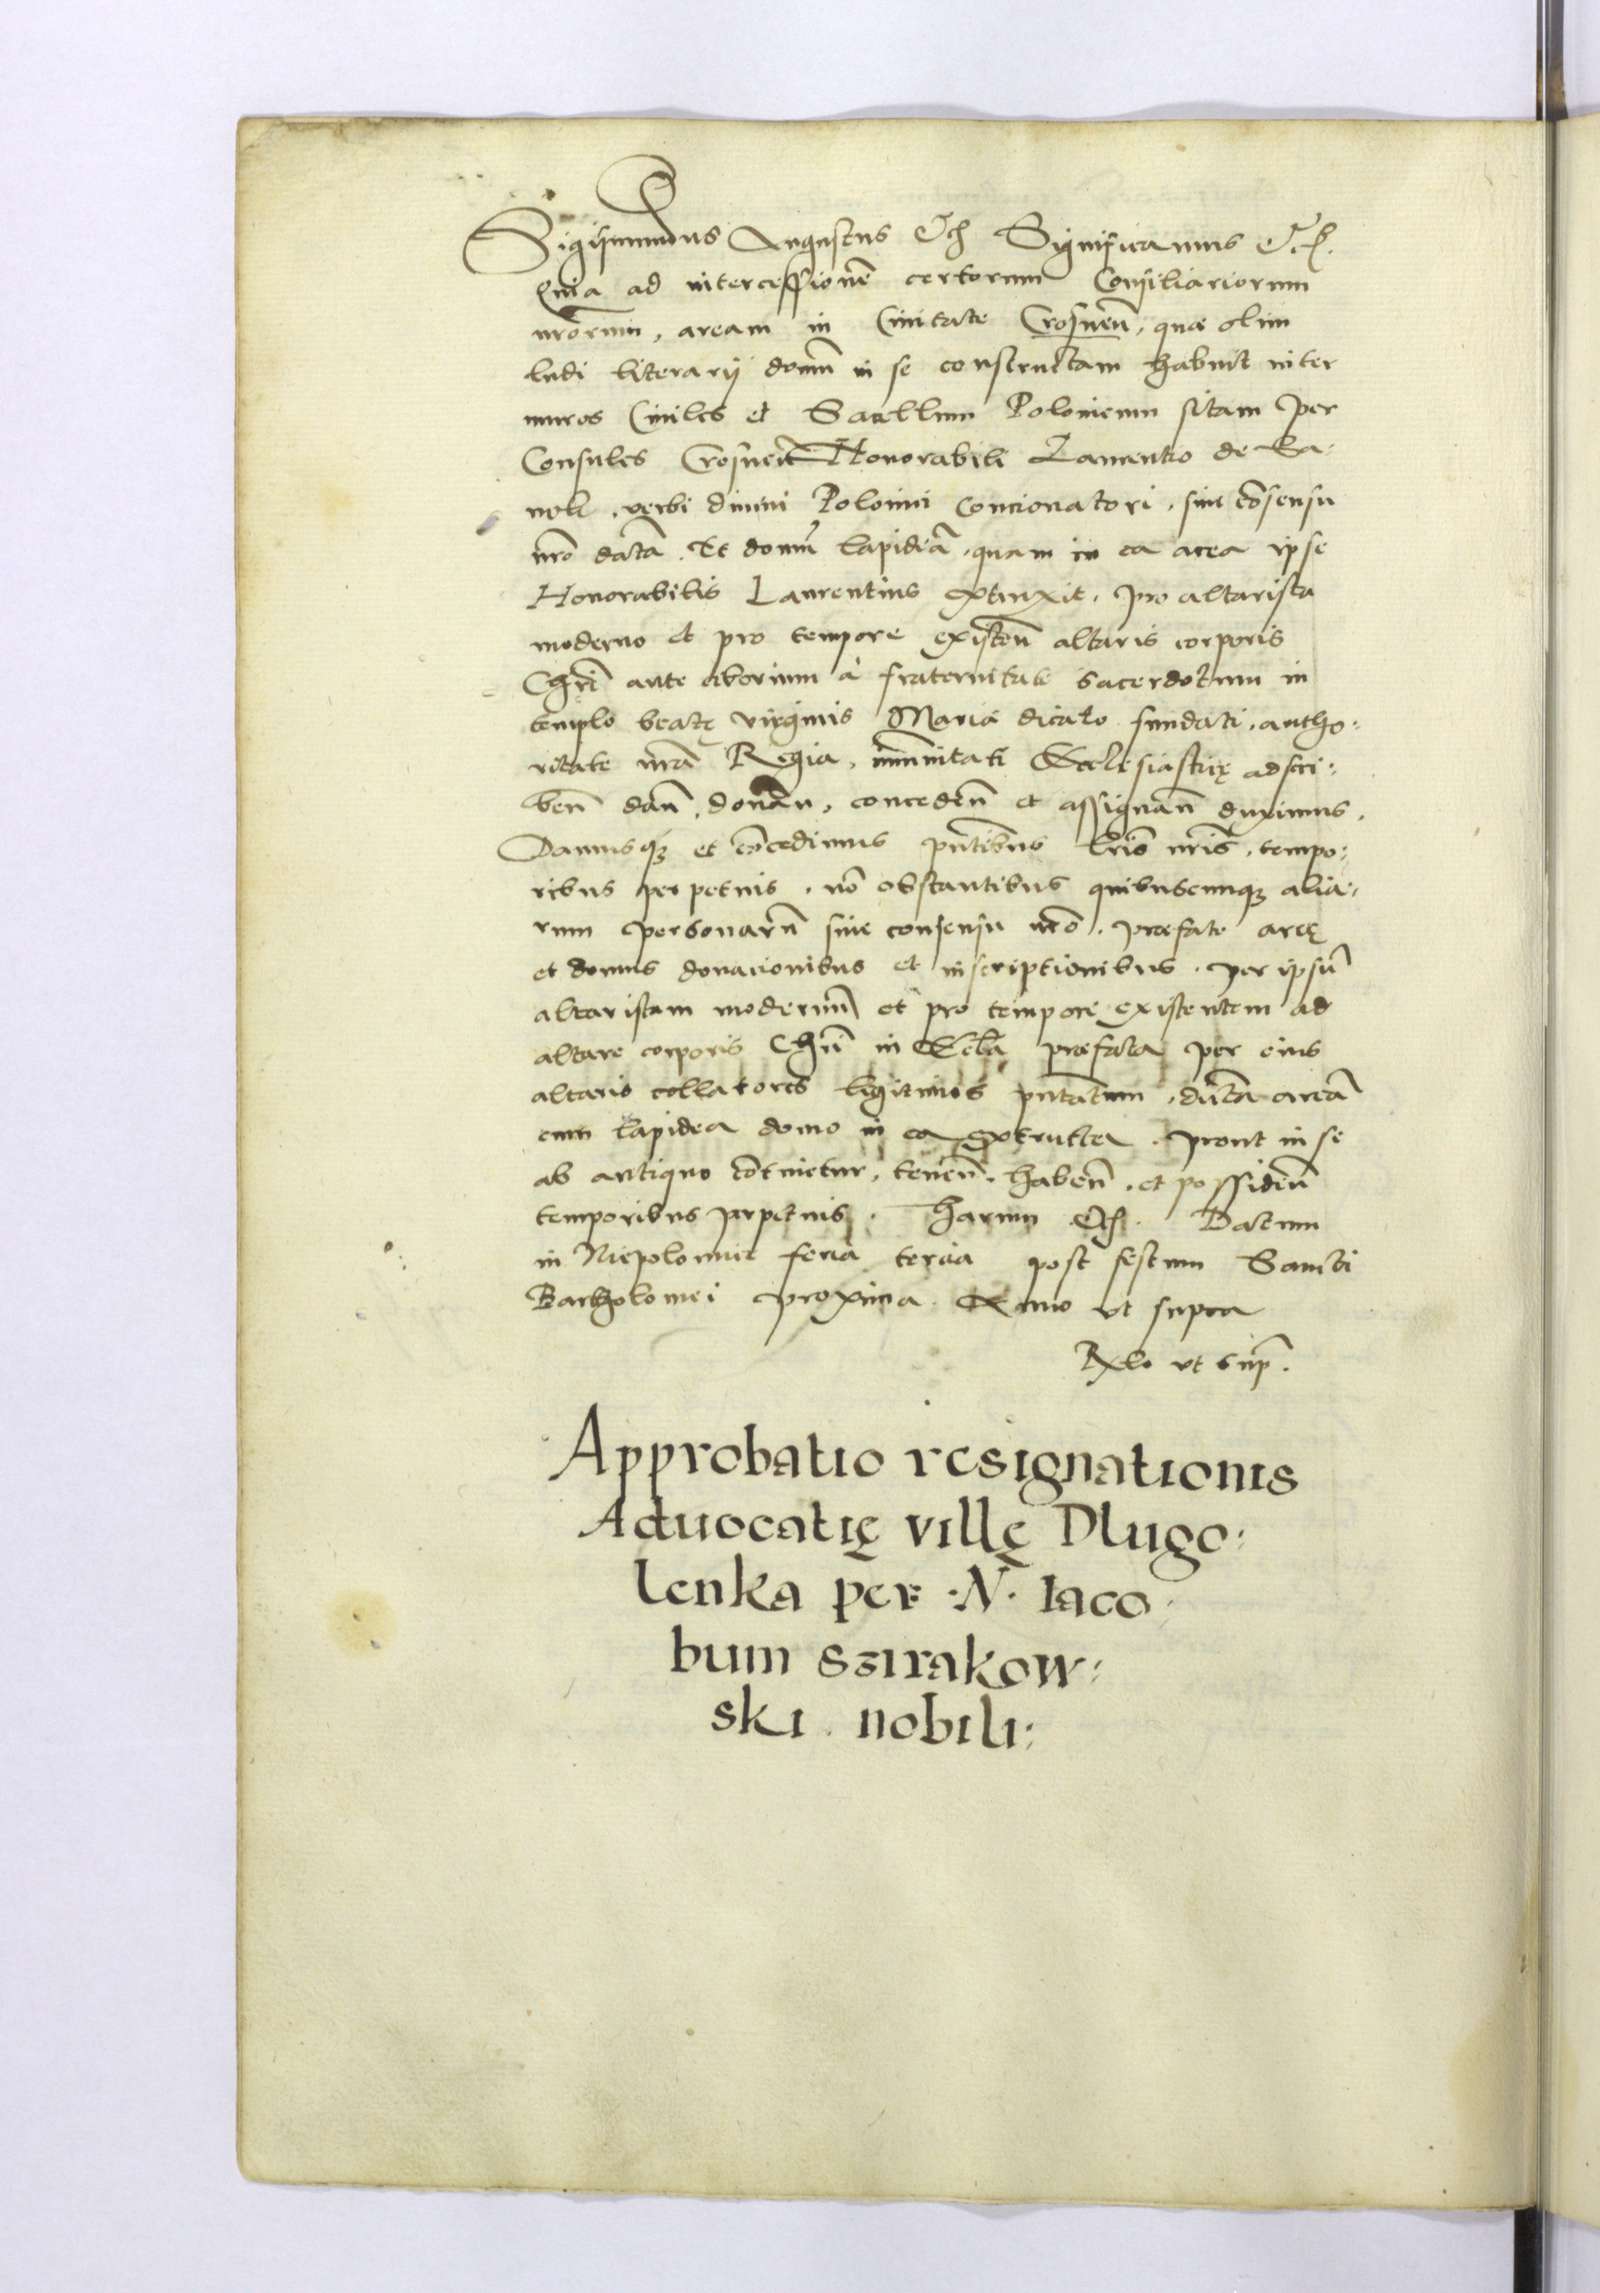 Sigismundus Augustus Etc̄ Significamus Etc̄.
Quia ad intercessionē certorum Consiliariorum
nrōrum, aream in Ciuitate Crosneñ, quæ olim
ludi literarij domū in se constructam habuit inter
muros Ciuiles et Sacellum Polonicum sitam per
Consules Crosneñ Honorabili Laurentio de Sa-
nok, verbi diuini Polonici Concionatori, sine cōsensu
nrō datā. Et domū lapideā, quam in ea area ipse
Honorabilis Laurentius extruxit, pro altarista
moderno et pro tempore existeñ altaris corporis
Chrī ante ciborium à fraternitate sacerdotum in
templo beatę virginis Mariæ dicato fundati, autho:
ritate nrā Regia, immunitati Ecclesiasticę adscri:
beñ dañ, donañ, concedeñ et assignañ duximus,
Damusq̨ et cōcedimus pn̄tibus lrīs nrīs, tempo:
ribus perpetuis, nō obstantibus quibuscunq̨ alia:
rum personarū sine consensu nrō, præfatę areę
et domus donacionibus et inscriptionibus, per ipsū
altaristam modernū et pro tempore existentem ad
altare corporis Chrī in Ecclā præfata per eius
altaris collatores legitimos pn̄tatum, dictā areā
cum lapidea domo in ea extructa, prout in se
ab antiquo cōtinetur, teneñ, habeñ, et possideñ
temporibus perpetuis. Harum Etc̄. Datum
in Niepolomicē feria tercia post festum Sancti
Bartholomei proxima Anno vt supra
Rēlo vt sup̄.
Approbatio resignationis
Aduocatię villę Dlugo:
lenka per .N. Iaco:
bum Szirakow:
ski nobili: